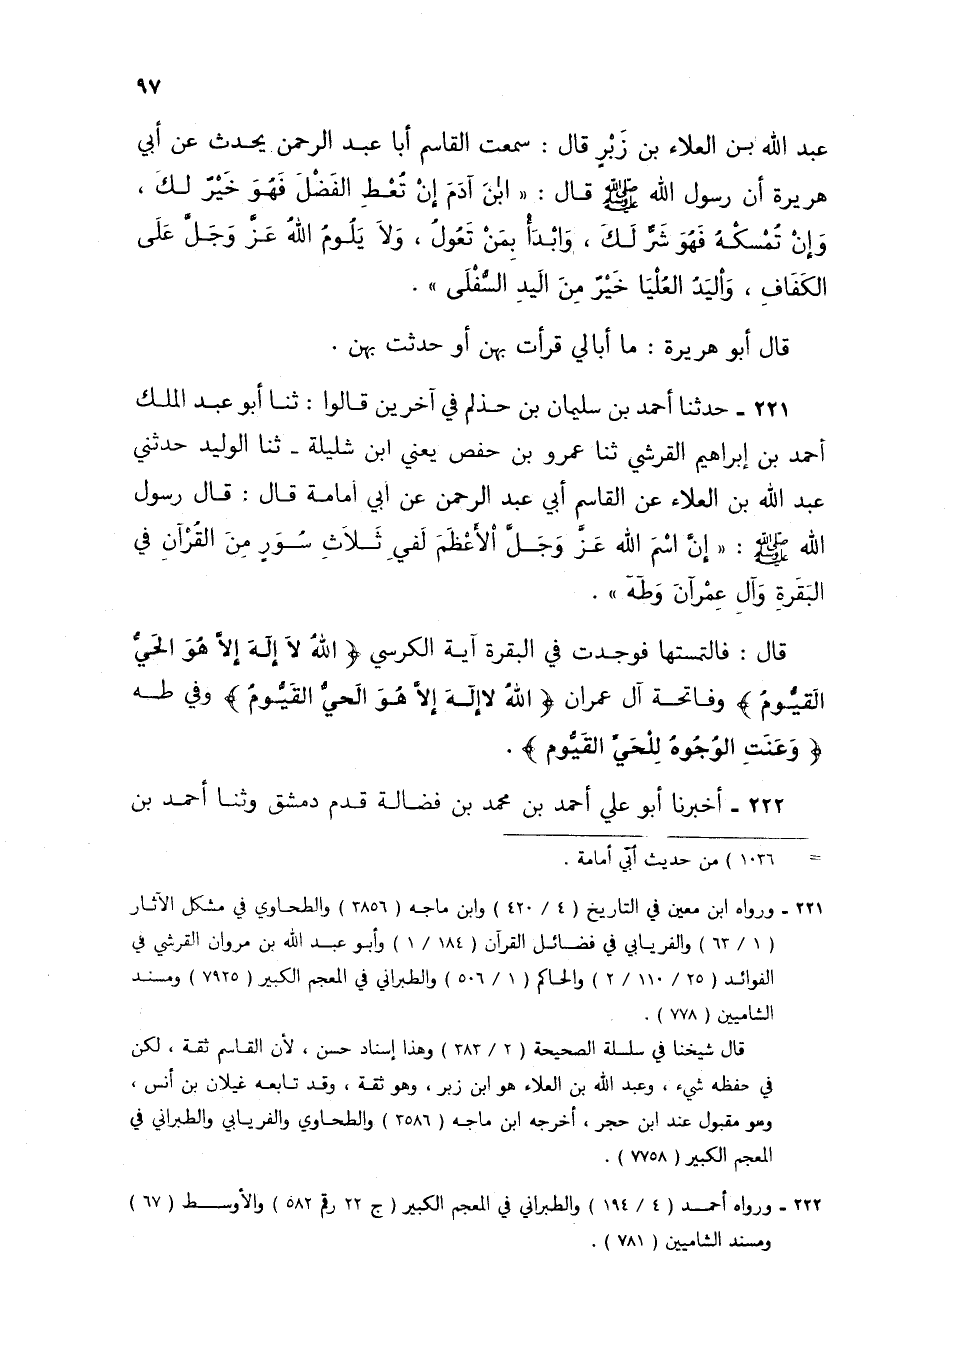 ٩٧
عبد الله بن العلاء بن زَبْرٍ قال : سمعت القاسم أبا عبد الرحمن يحدث عن أبي
هريرة أن رسول الله ﷺ قال : « ابْنَ آدَمَ إنْ تُعْطِ الفَضْلَ فَهُوَ خَيْرٌ لَكَ ،
وَإنْ تُمْسِكْهُ فَهُوَ شَرٌّ لَكَ ، وَابْدَأْ بِمَنْ تَعُولُ ، وَلاَ يَلُومُ اللهُ عَزَّ وَجَلَّ عَلَى
الكَفَافِ ، وَأليَدُ العُلْيَا خَيْرٌ مِنَ اليَدِ السُّفْلَى » .
قال أبو هريرة : ما أبالي قرأت بهن أو حدثت بهن .
٢٢١ - حدثنا أحمد بن سليمان بن حذلم في آخرين قالوا : ثنا أبو عبد الملك
أحمد بن إبراهيم القرشي ثنا عمرو بن حفص يعني ابن شليلة - ثنا الوليد حدثني
عبد الله بن العلاء عن القاسم أبي عبد الرحمن عن أبي أمامة قال : قال رسول
الله ﷺ : « إنَّ اسْمَ الله عَزَّ وَجَلَّ ألأَعْظَمَ لَفِي ثَلاَثِ سُوَرٍ مِنَ القُرْآنِ في
البَقَرةِ وَآلِ عِمْرَانَ وَطَهَ » .
قال : فالتمستها فوجدت في البقرة آية الكرسي ﴿ اللهُ لاَ إلَهَ إلاَّ هُوَ الحَيُّ
القَيُّومُ ﴾ وفاتحة آل عمران ﴿ اللهُ لاإلَهَ إلاَّ هُوَ الَحيُّ القَيُّومُ ﴾ وفي طه
﴿ وَعَنَتِ الوُجُوهُ لِلْحَيِّ القَيُّومِ ﴾ .
٢٢٢ - أخبرنا أبو علي أحمد بن محمد بن فضالة قدم دمشق وثنا أحمد بن
= ١٠٣٦ ) من حديث أبي أمامة .
٢٢١ - ورواه ابن معين في التاريخ ( ٤ / ٤٢٠ ) وابن ماجه ( ٣٨٥٦ ) والطحاوي في مشكل الآثار
( ١ / ٦٣ ) والفريابي في فضائل القرآن ( ١٨٤ / ١ ) وأبو عبد الله بن مروان القرشي في
الفوائد ( ٢٥ / ١١٠ / ٢ ) والحاكم ( ١ / ٥٠٦ ) والطبراني في المعجم الكبير ( ٧٩٢٥ ) ومسند
الشاميين ( ٧٧٨ ) .
قال شيخنا في سلسلة الصحيحة ( ٢ / ٣٨٣ ) وهذا إسناد حسن ، لأن القاسم ثقة ، لكن
في حفظه شيء ، وعبد الله بن العلاء هو ابن زبر ، وهو ثقة ، وقد تابعه غيلان بن أنس ،
وهو مقبول عند ابن حجر ، أخرجه ابن ماجه ( ٣٥٨٦ ) والطحاوي والفريابي والطبراني في
المعجم الكبير ( ٧٧٥٨ ) .
٢٢٢ - ورواه أحمد ( ٤ / ١٩٤ ) والطبراني في المعجم الكبير ( ج ٢٢ رقم ٥٨٢ ) والأوسط ( ٦٧ )
ومسند الشاميين ( ٧٨١ ) .